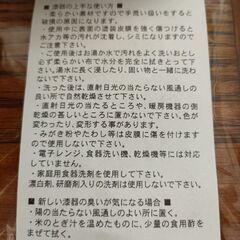 ■漆器の上手な使い方■
・柔らかい素材ですので手荒い扱いをすると
破損の原因になります。
・使用中に表面の塗装皮膜を強く傷つけると
その方に汚れが沈着し、シミになりますので
ご注意ください。
・ご使用後はお湯か水で汚れをよく洗いおとし
必ず柔らかい布で水分を完全に拭きとって下
さい。湯水に長く浸したり、固い物と一緒に洗わ
ないで下さい。
・直射日光の当たらない、風通しの
良い所で自然乾燥させて下さい。
・直射日光の当たるところや、暖房機器の側
乾燥の甚しいところに置かないで下さい。色が
変わったり、変形する事があります。
・みがき粉やたわし等は皮膜に傷を付けます
ので使用しないで下さい。
・電子レンジ、食器洗い機、乾燥機等には対応
しておりません。
・家庭用食器洗剤を使用して下さい。
漂白剤、研磨剤入りの洗剤は使用しないで
下さい。
■新しい漆器の臭いが気になる場合■
・陽の当たらない風通しのよい所に置く。
・米のとぎ汁を温めたものに、少量の食用酢を
まぜて拭く。